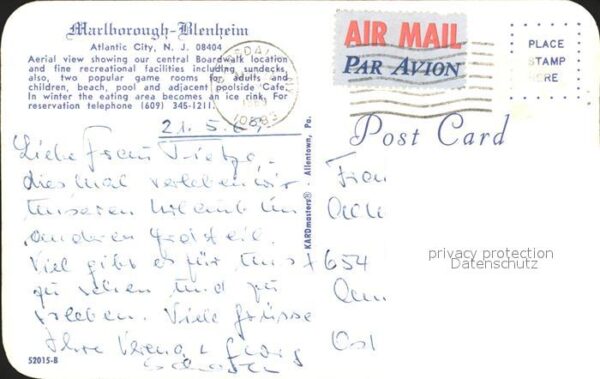 Marlborough-Blenheim
Atlantic City, N. J. 08404
Aerial view showing our central Boardwalk location
and fine recreational facilities including sundecks,
also, two popular game rooms for adults and
children, beach, pool and adjacent poolside Cafe.
In winter the eating area becomes an ice rink. For
reservation telephone (609) 345-1211.
AIR MAIL
PAR AVION
PLACE
STAMP
HERE
Post Card
KARDmasters® - Allentown, Pa.
21.5.
Liebe Frau
diesmal verleben wir
unseren Urlaub im
anderen Erdteil.
Viel gibt es für uns
zu sehen und zu
erleben. Viele Grüsse
Ihre Verena + Georg
Frau
654
privacy protection
Datenschutz
52015-B